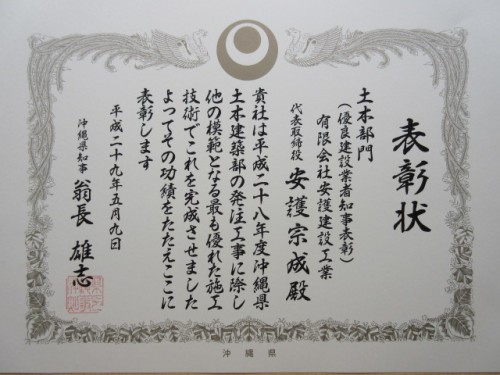 表彰状
土木部門
(優良建設業者知事表彰)
有限会社安護建設工業
代表取締役 安護宗成殿
貴社は平成二十八年度沖縄県
土木建築部の発注工事に際し
他の模範となる最も優れた施工
技術でこれを完成させました
よってその功績をたたえここに
表彰します
平成二十九年五月九日
沖縄県知事 翁長雄志
沖縄県